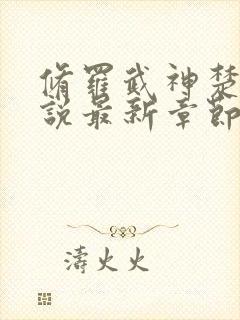 脩羅武神楚
說最新章節
濤火火